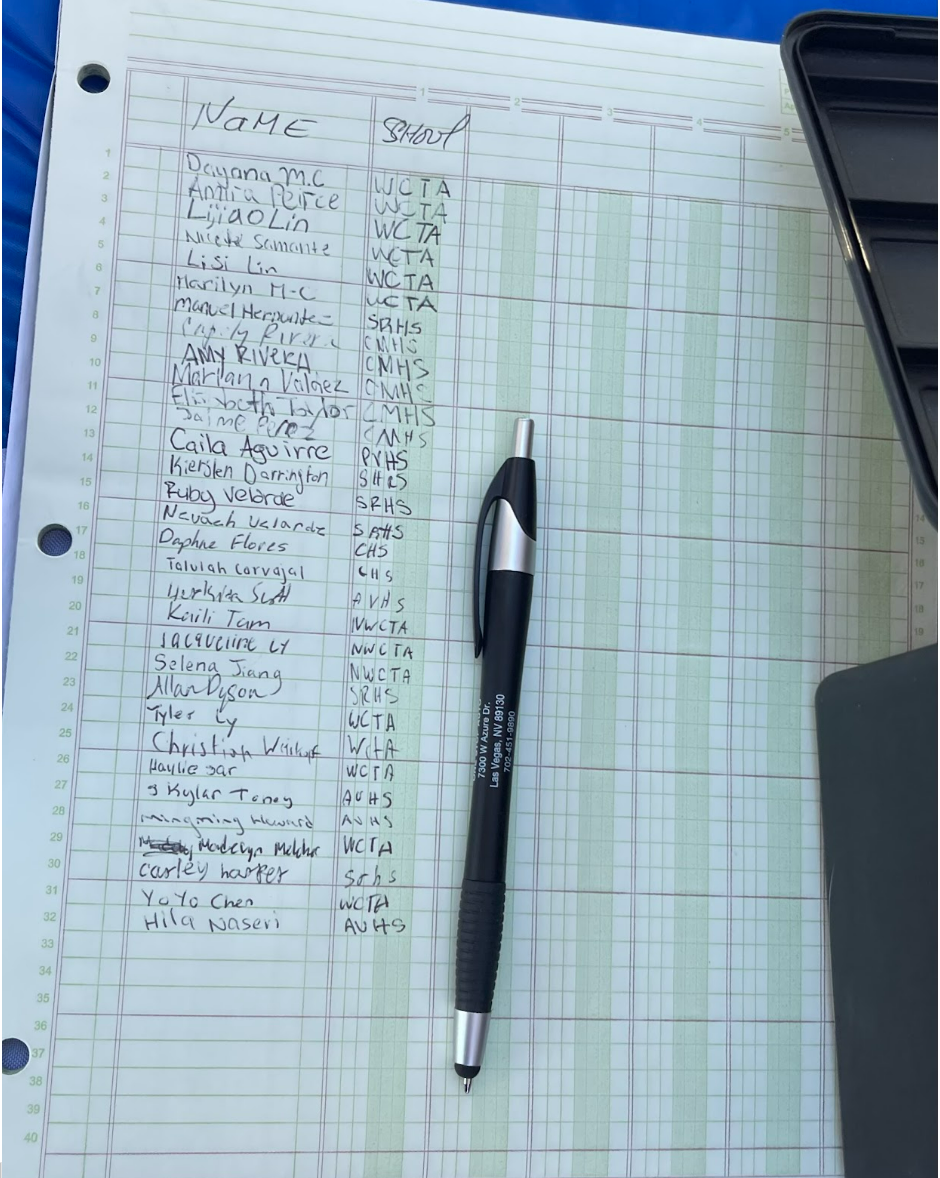 1 2 3 4 5
NaME SHOOL
1 Dayana M.C WCTA
2 Anttia Peirce WCTA
3 Lijiao Lin WCTA
4 Samante WCTA
5 Lisi Lin WCTA
6 Marilyn M-C WCTA
7 Manuel Hernandez SRHS
8 Rivera CMHS
9 AMY RIVERA CMHS
10 Mariann Valdez CMHS
11 Elizabeth Taylor CMHS
12 Jaime Perez CMHS
13 Caila Aguirre PVHS
14 Kiersten Darrington SHRS
15 Ruby Velarde SRHS
16 Nevaeh Velarde SRHS
17 Daphne Flores CHS
18 Talulah Carvajal CHS
19 Scott AVHS
20 Kaili Tam NWCTA
21 Jacqueline Ly NWCTA
22 Selena Jiang NWCTA
23 Allan Dyson SRHS
24 Tyler Ly WCTA
25 Christian WCTA
26 Haylie Jar WCTA
27 Skylar Toney AVHS
28 Mingming Howard AVHS
29 Madelyn WCTA
30 Carley harper Srhs
31 YoYo Chen WCTA
32 Hila Naseri AVHS
33
34
35
36
37
38
39
40
7300 W Azure Dr.
Las Vegas, NV 89130
702-451-9890